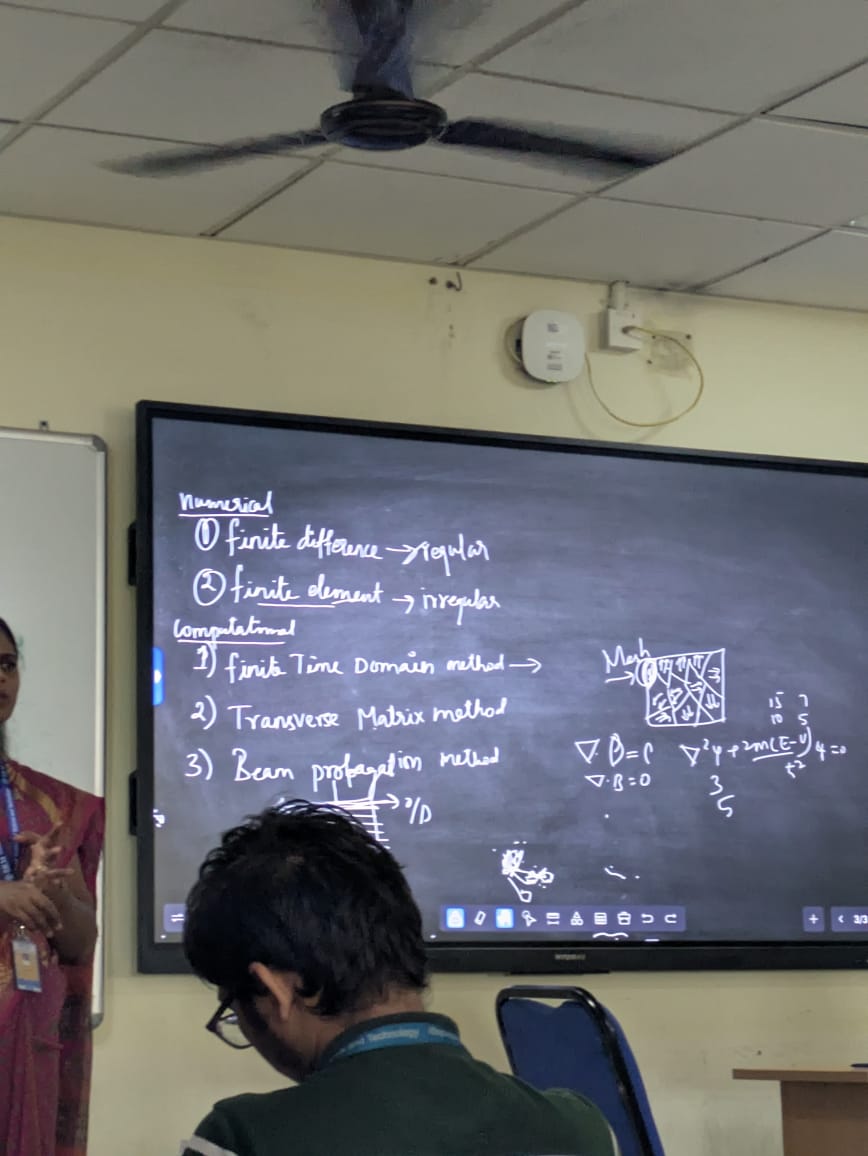 Numerical
① finite difference → regular
② finite element → irregular
Computational
1) finite Time Domain method →
2) Transverse Matrix method
3) Beam propagation method
Mesh
15 7
10 5
∇·D=ρ
∇·B=0
∇²ψ+2m(E-V)ψ=0
ħ²
3
5
I/D
3/3
Technology